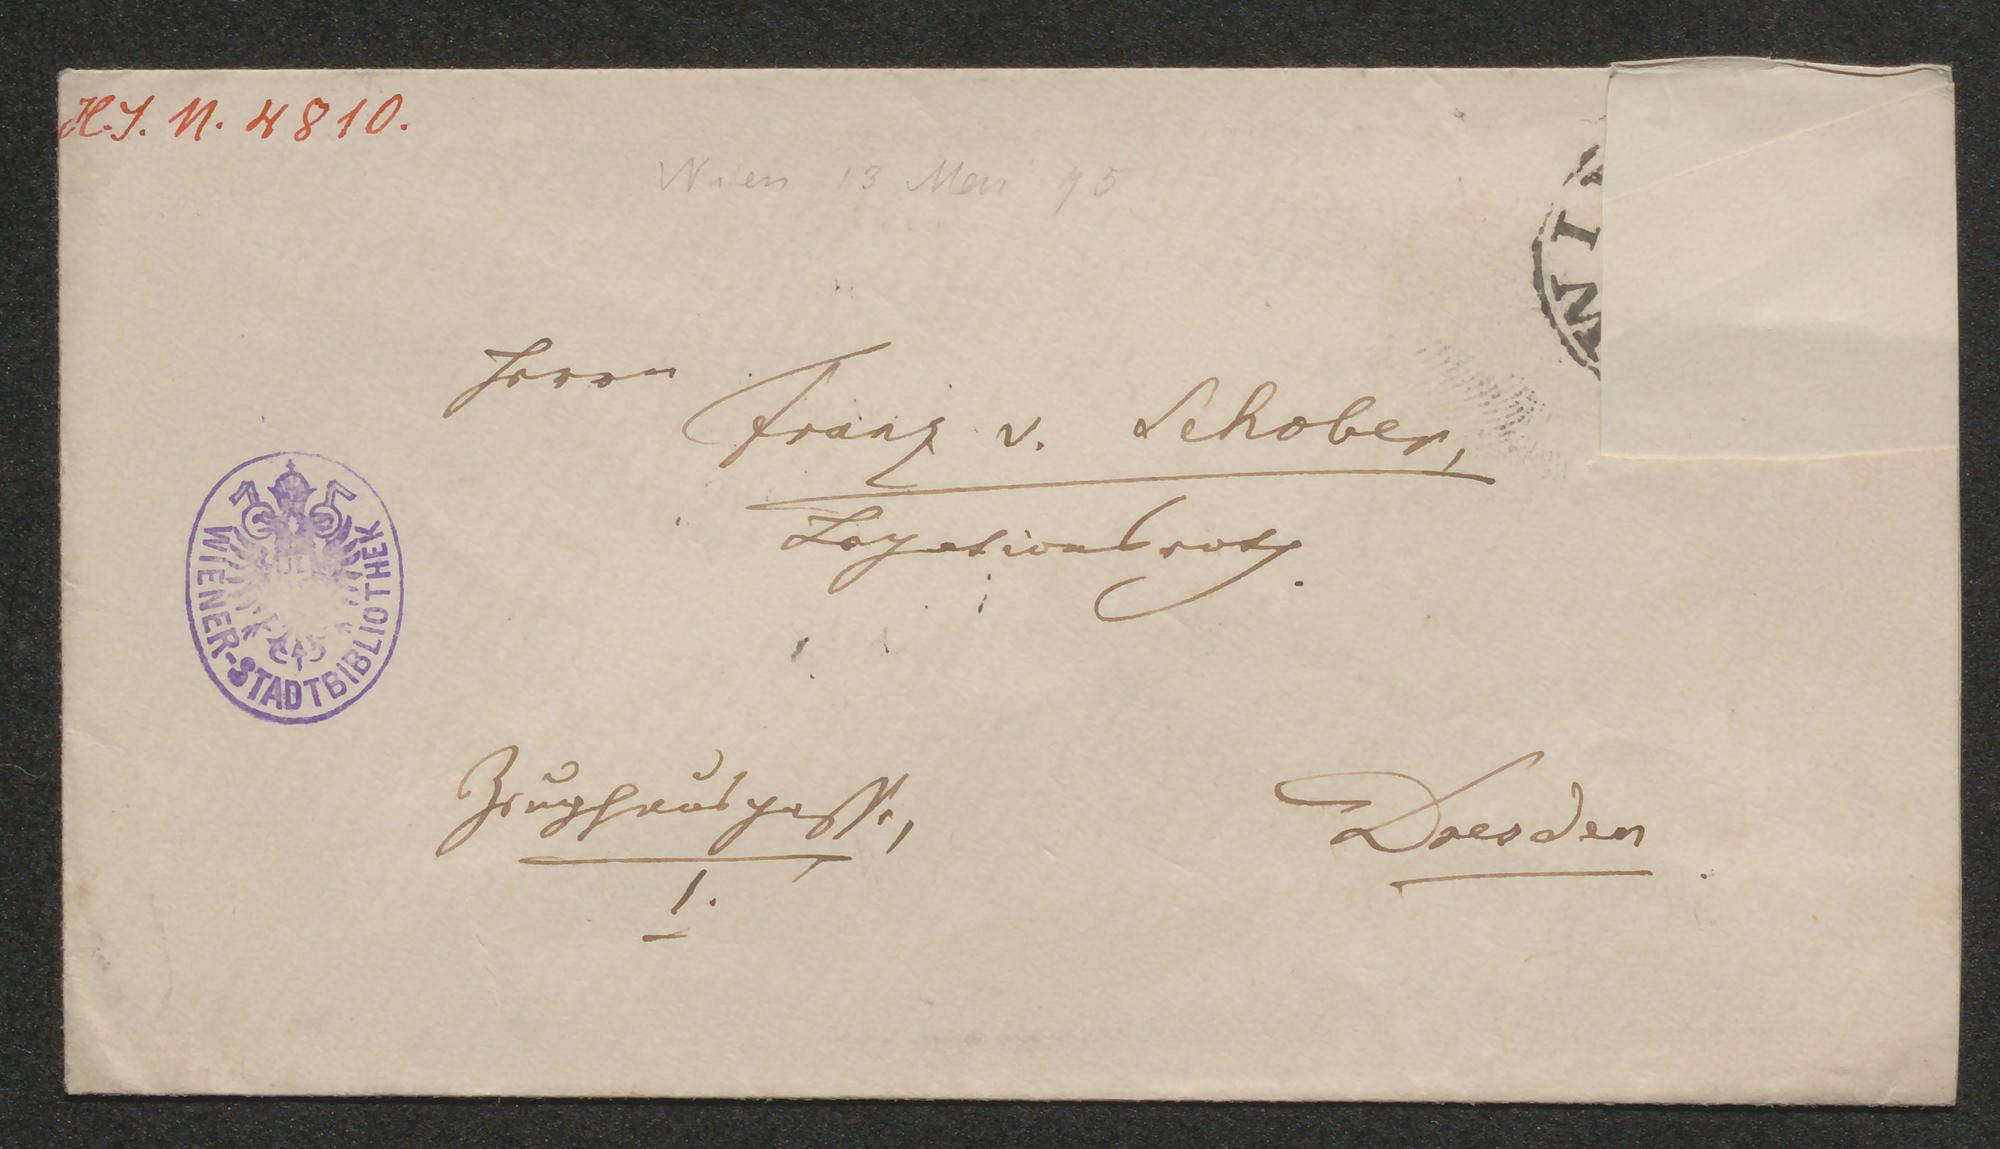 H.I.N. 4810.
Wien 13 Mai 75
WIEN
Herrn Franz v. Schober,
Legationsrath.
WIENER-STADTBIBLIOTHEK
Zeughausgasse,
Dresden.
1.